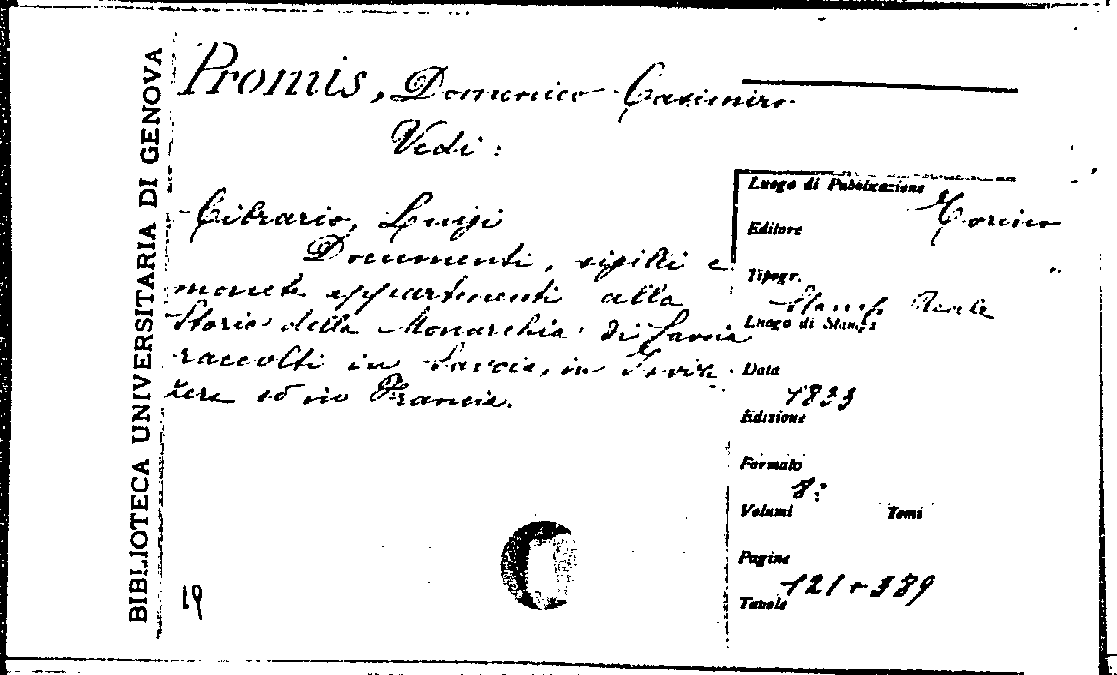 BIBLIOTECA UNIVERSITARIA DI GENOVA
Promis, Domenico Casimiro
Vedi:
Cibrario, Luigi
Documenti, sigilli e
monete appartenenti alla
Storia della Monarchia di Savoia
raccolti in Savoia, in Svizz
zera ed in Francia.
19
Luogo di Pubblicazione
Torino
Editore
Tipogr.
Stamp. Reale
Luogo di Stampa
Data
1833
Edizione
Formato
8:
Volumi Tomi
Pagine
121 + 389
Tavole